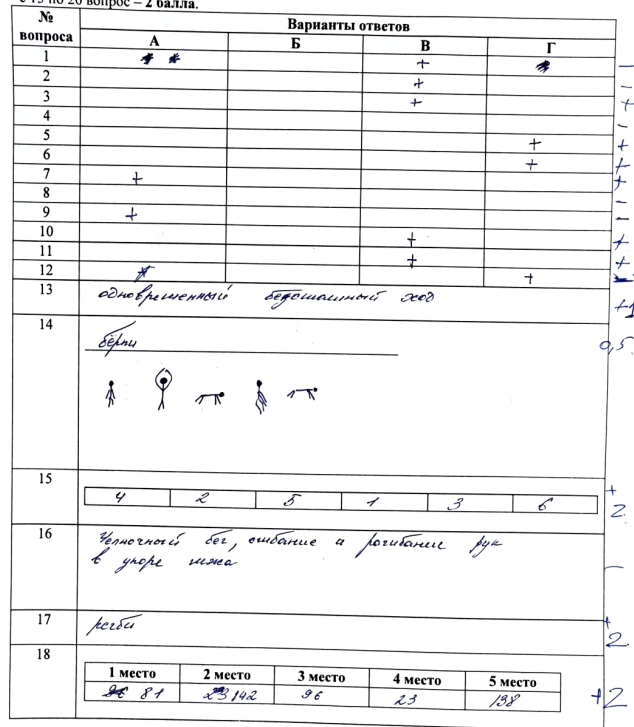 с 13 по 20 вопрос – 2 балла.
№ вопроса Варианты ответов
А Б В Г
1 + –
2 + –
3 + +
4 –
5 + +
6 + +
7 + +
8 –
9 + –
10 + +
11 + +
12 +
13 одновременный бесшажный ход +1
14 бёрпи 0,5
15 4 2 5 1 3 6 + 2
16 Челночный бег, сгибание и разгибание рук –
в упоре лёжа
17 регби + 2
18
1 место 2 место 3 место 4 место 5 место
81 142 96 23 138 +2